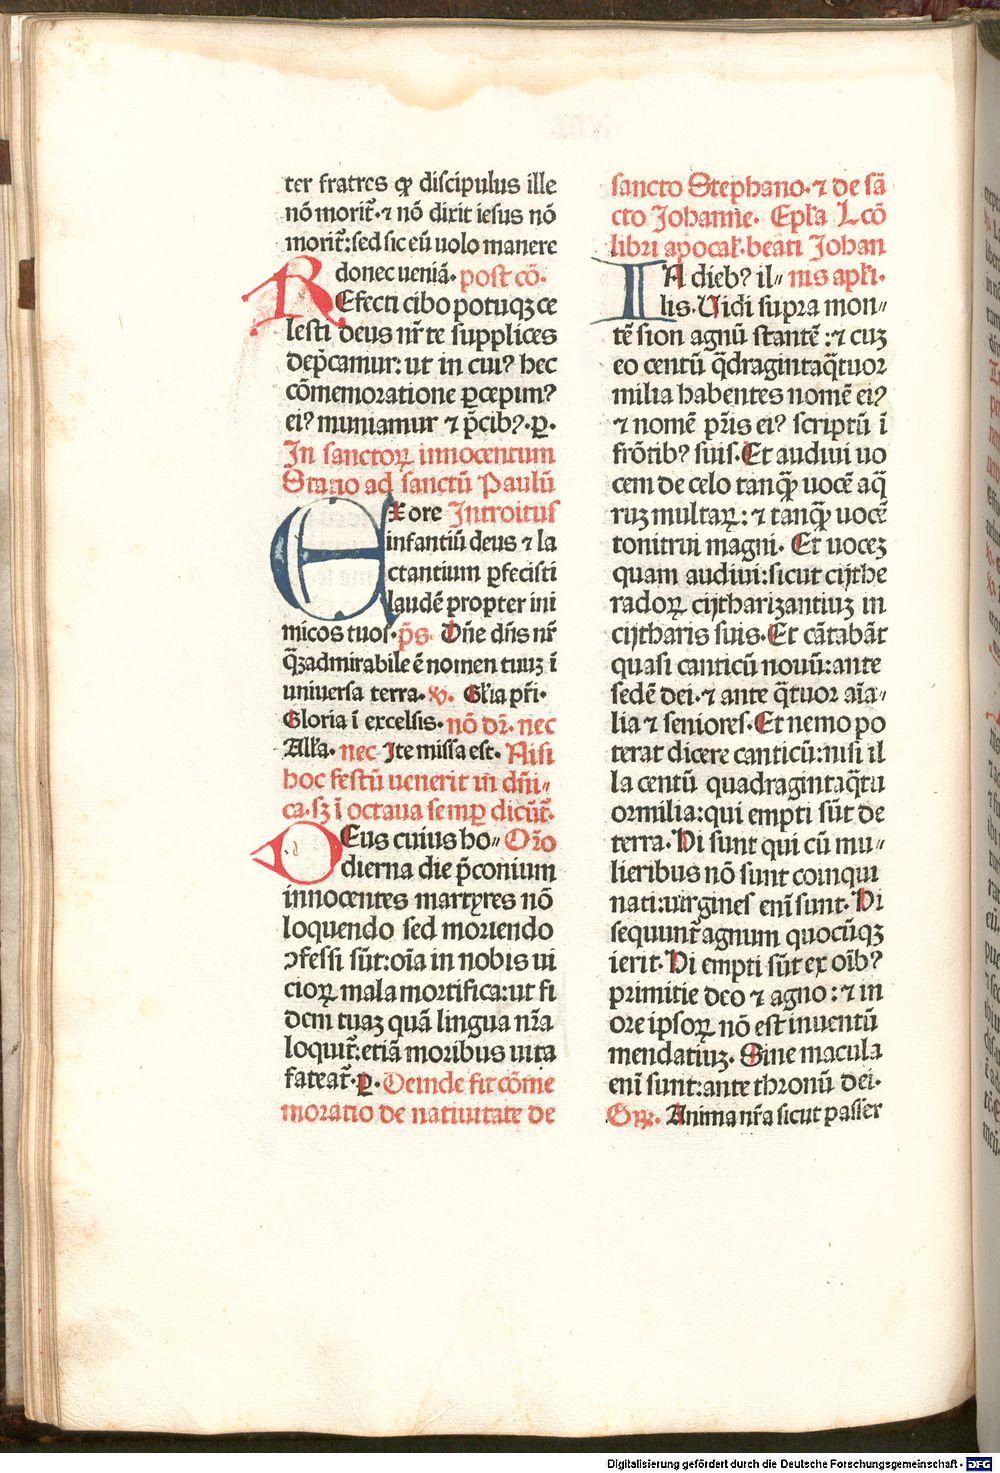 ter fratres ꝙ discipulus ille
nō morit᷑·⁊ nō dixit iesus nō
morit᷑:sed sic eū uolo manere
donec ueniā· post cō·
REfecti cibo potuqꝫ ce
lesti deus nr̄ te supplices
dep̄camur: ut in cuiꝰ hec
cōmemoratione ꝑcepimꝰ
eiꝰ muniamur ⁊ p̄cibꝰ·ꝑ·
In sanctoꝝ innocentum
Statio ad sanctū Paulū
EXore Introitus
infantiū deus ⁊ la
ctantium ꝑfecisti
laudē propter ini
micos tuos·p̄s· Dn̄e dn̄s nr̄
q̄ꝫadmirabile ē nomen tuuꝫ ī
uniuersa terra·℣· Gl̄ia pr̄i·
Gloria ī excelsis· nō dr̄· nec
All̄a· nec Ite missa est· Nisi
hoc festū uenerit in dn̄i„
ca·sꝫ ī octaua semꝑ dicūt᷑·
DEus cuius ho„ Orō
dierna die p̄conium
innocentes martyres nō
loquendo sed moriendo
ↄfessi sūt:oīa in nobis ui
cioꝝ mala mortifica:ut fi
dem tuaꝫ quā lingua nr̄a
loquit᷑:etiā moribus uita
fateat᷑·ꝑ· Deinde fit cōme
moratio de natiuitate de
sancto Stephano·⁊ de sā
cto Johanne· Epl̄a Lcō
libri apocal̄·beati Johan
IN dieb? il„ nis apl̄i·
lis·Vidi supra mon„
tē sion agnū stantē:⁊ cuꝫ
eo centū q̄dragintaq̄tuor
milia habentes nomē eiꝰ
⁊ nomē pr̄is eiꝰ scriptū ī
frōtibꝰ suis·Et audiui uo
cem de celo tanqꝫ̄ uocē aq̄
ruꝫ multaꝝ:⁊ tanqꝫ̄ uocē
tonitrui magni· Et uoceꝫ
quam audiui:sicut cijthe
radoꝝ cijtharizantiuꝫ in
cijtharis suis·Et cātabāt
quasi canticū nouū:ante
sedē dei·⁊ ante q̄tuor aīa„
lia ⁊ seniores·Et nemo po
terat dicere canticū:nisi il
la centū quadragintaq̄tu
ormilia:qui empti sūt de
terra·Hi sunt qui cū mu„
lieribus nō sunt coinqui
nati:uirgines enī sunt·Hi
sequunt᷑ agnum quocūqꝫ
ierit·Hi empti sūt ex oībꝰ
primitie deo ⁊ agno:⁊ in
ore ipsoꝝ nō est inuentū
mendatiuꝫ·Sine macula
enī sunt:ante thronū dei·
Gꝝ· Anima nr̄a sicut passer
Digitalisierung gefördert durch die Deutsche Forschungsgemeinschaft · DFG